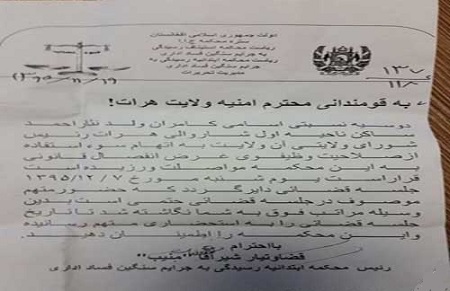 دولت جمهوری اسلامی افغانستان
ستره محکمه ج.ا.ا
ریاست محکمه استیناف رسیدگی
به جرایم سنگین فساد اداری
ریاست محکمه ابتدائیه رسیدگی به
جرایم سنگین فساد اداری
مدیریت تحریرات
به قومندانی محترم امنیه ولایت هرات!
دوسیه نسبتی اسامی کامران ولد نثاراحمد
ساکن ناحیه اول شاروالی هرات رئیس
شورای ولایتی آن ولایت به اتهام سوء استفاده
ازصلاحیت وظیفوی غرض انفصال قانونی
به این محکمه مواصلت ورزیده است
قراراست یوم شنبه مورخ ۱۳۹۵/۱۲/۷
جلسه قضائی دایرگردد که حضورمتهم
موصوف درجلسه قضائی حتمی است بدین
وسیله مراتب فوق به شما نگاشته شد تا تاریخ
جلسه قضائی را به استحضاری متهم رسانیده
واین محکمه را اطمینان دهید.
بااحترام
قضاوتیار شیرآقا "منیب"
رئیس محکمه ابتدائیه رسیدگی به جرایم سنگین فساد اداری